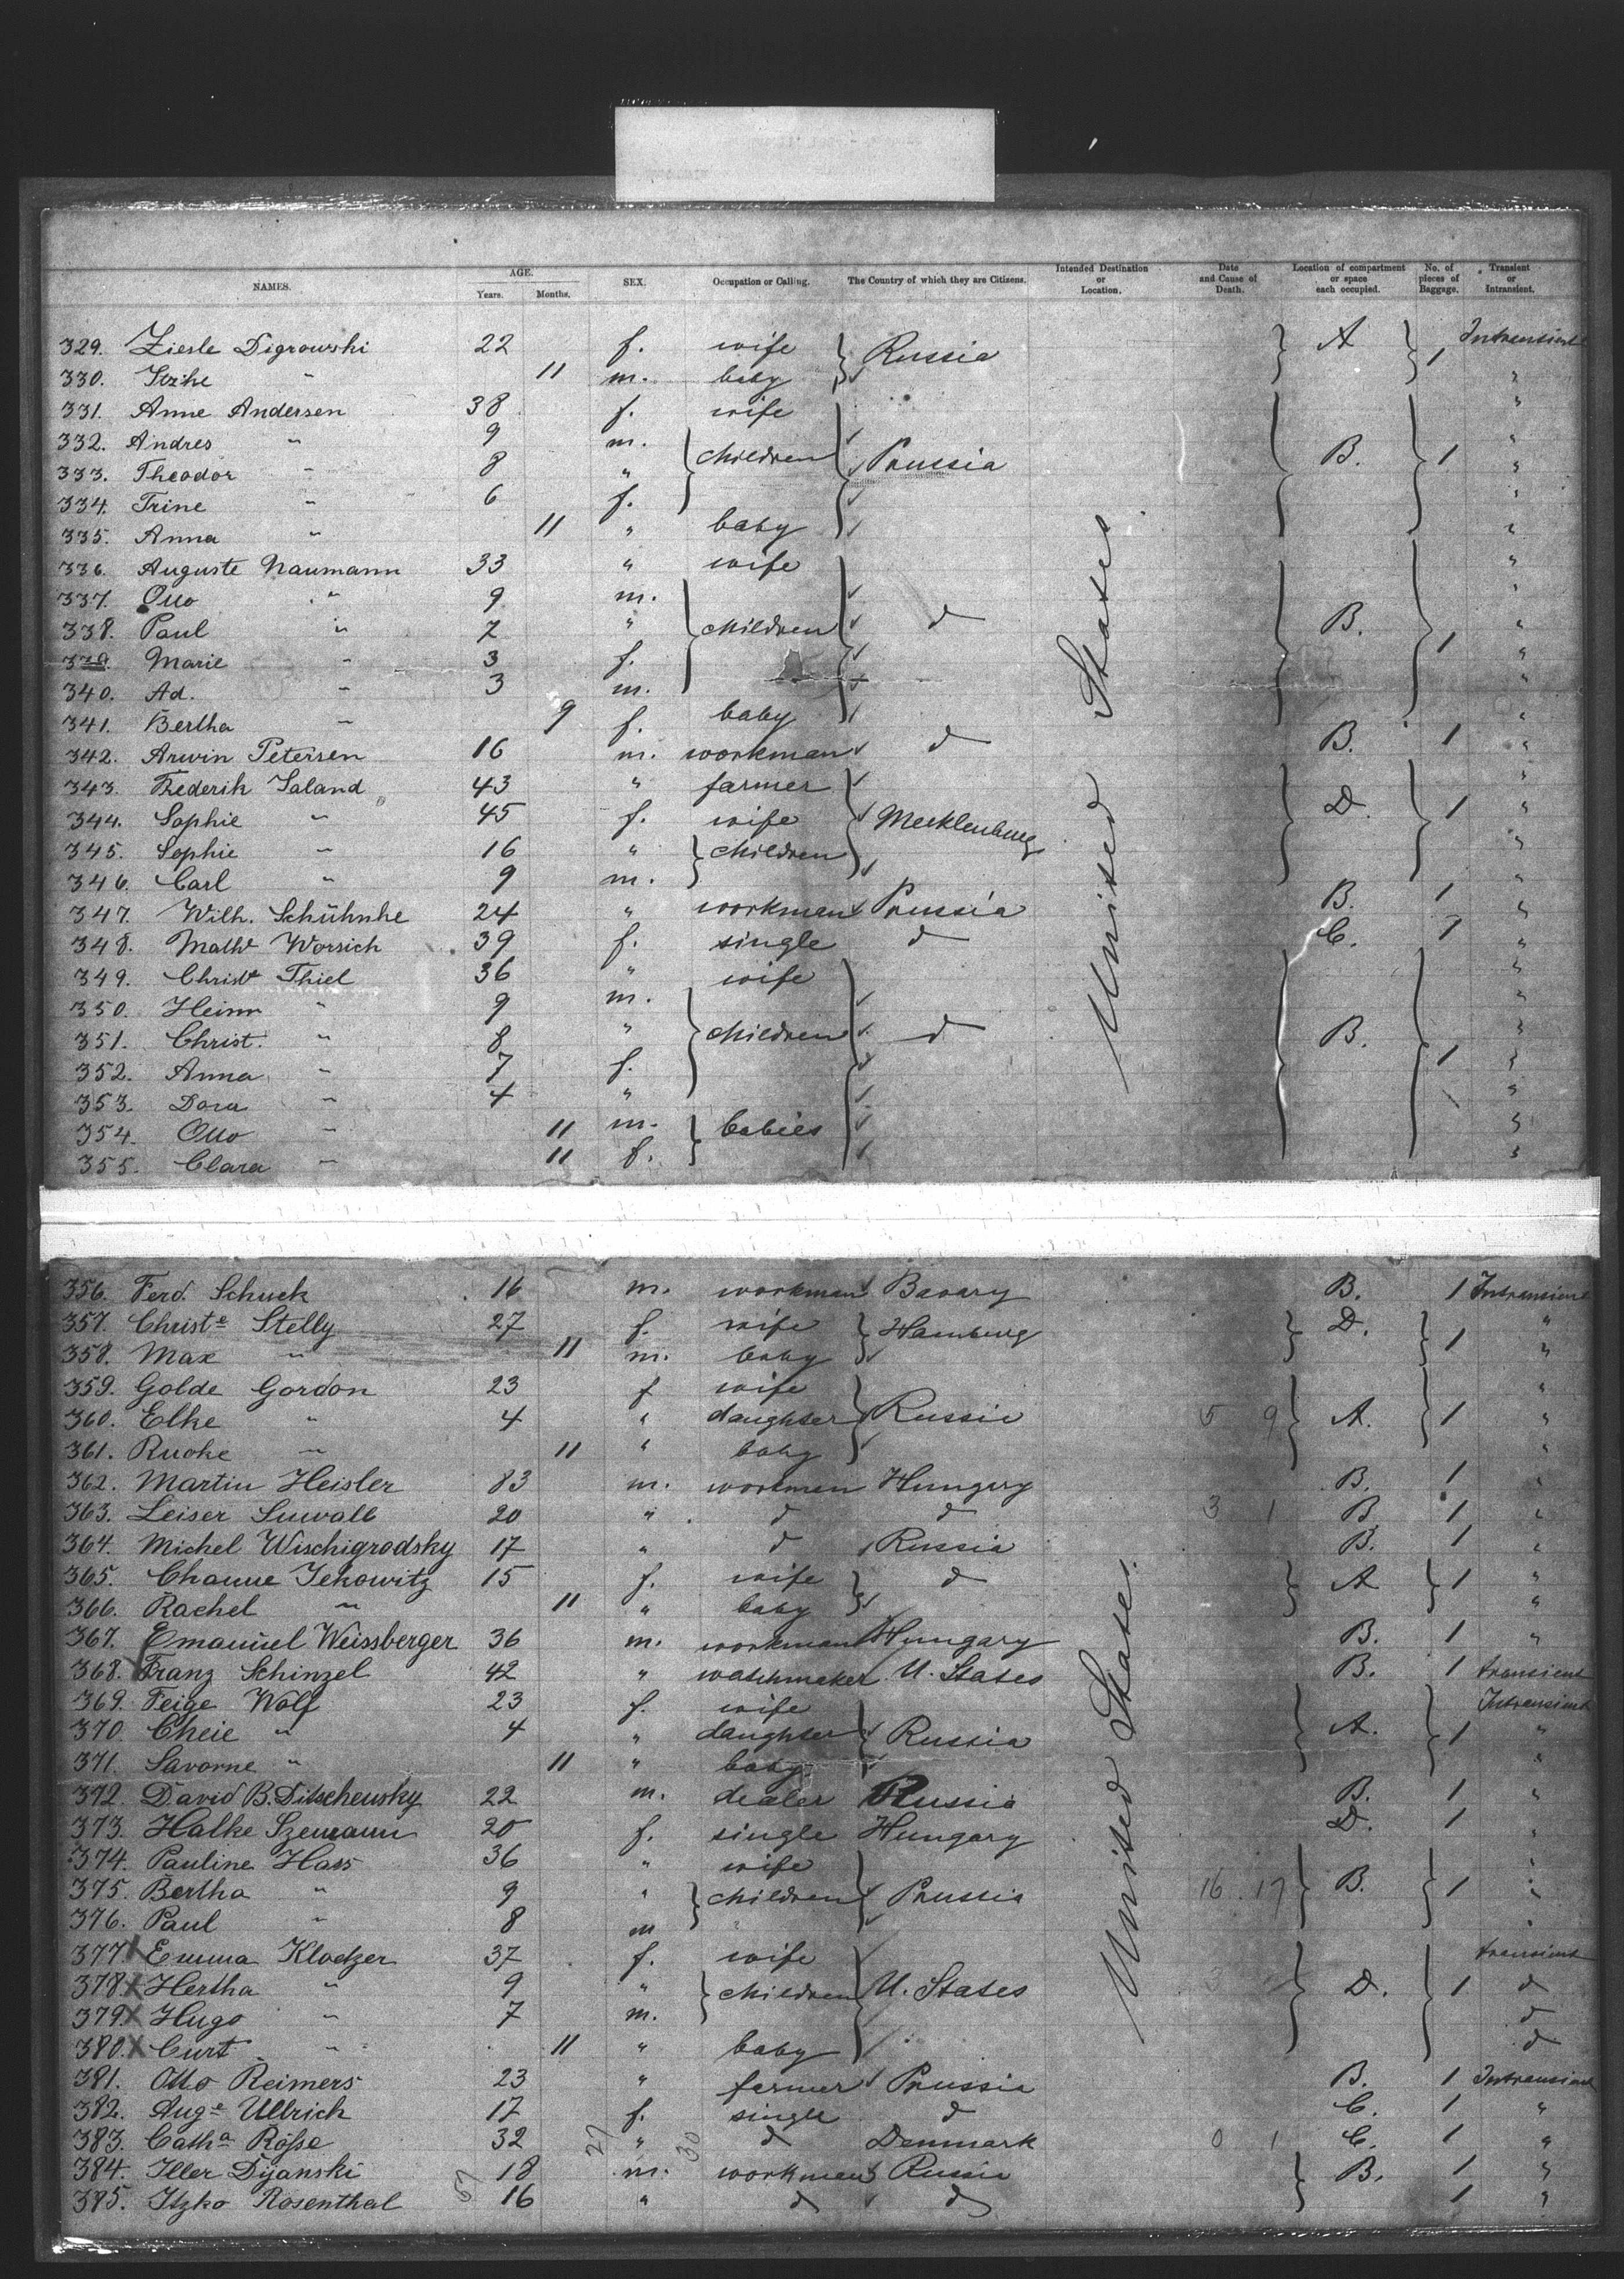 NAMES. AGE. Years. Months. SEX. Occupation or Calling. The Country of which they are Citizens. Intended Destination or Location. Date and Cause of Death. Location of compartment or space each occupied. No. of pieces of Baggage. Transient or Intransient.
329. Ziesle Digrowski 22 f. wife Russia A 1 Intransient
330. Itzke " 11 m. baby "
331. Anne Andersen 38 f. wife "
332. Andres " 9 m. children Prussia B. 1 "
333. Theodor " 8 " "
334. Trine " 6 f. "
335. Anna " 11 " baby "
336. Auguste Naumann 33 " wife "
337. Otto " 9 m. children d B. 1 "
338. Paul " 7 " "
339. Marie " 3 f. "
340. Ad. " 3 m. "
341. Bertha " 9 f. baby "
342. Arwin Petersen 16 m. workman d B. 1 "
343. Frederik Saland 43 " farmer Mecklenburg D. 1 "
344. Sophie " 45 f. wife "
345. Sophie " 16 " children "
346. Carl " 9 m. "
347. Wilh. Schühnke 24 " workman Prussia B. 1 "
348. Mathe Worsich 39 f. single d C. 1 "
349. Christe Thiel 36 " wife "
350. Heinr " 9 m. children d B. 1 "
351. Christ. " 8 " "
352. Anna " 7 f. "
353. Dora " 4 " "
354. Otto " 11 m. babies "
355. Clara " 11 f. "
United States
356. Ferd. Schuck 16 m. workman Bavary B. 1 Intransient
357. Christe Stelly 27 f. wife Hamburg D. 1 "
358. Max " 11 m. baby "
359. Golde Gordon 23 f wife Russie A. 1 "
360. Elke " 4 " daughter 5 9 "
361. Rucke " 11 " baby "
362. Martin Heisler 83 m. workmen Hungary B. 1 "
363. Leiser Suwalb 20 " d d 3 1 B 1 "
364. Michel Wischigrodsky 17 " d Russia B. 1 "
365. Channe Jekowitz 15 f. wife d A 1 "
366. Rachel " 11 " baby "
367. Emanuel Weissberger 36 m. workman Hungary B. 1 "
368. Franz Schinzel 42 " watchmaker U. States B. 1 transient
369. Feige Wolf 23 f. wife Russia A. 1 Intransient
370. Cheie " 4 " daughter "
371. Savorne " 11 " baby "
372. David B. Ditschewsky 22 m. dealer Russia B. 1 "
373. Halke Szemann 20 f. single Hungary D. 1 "
374. Pauline Hass 36 " wife "
375. Bertha " 9 " children Prussia 16 17 B. 1 "
376. Paul " 8 m "
377. X Emma Kloetzer 37 f. wife transient
378. X Hertha " 9 " children U. States 3 D. 1 d
379. X Hugo " 7 m. d
380. X Curt " 11 " baby d
381. Otto Reimers 23 " farmer Prussia B. 1 Intransient
382. Auge Ullrich 17 f. single d C. 1 "
383. Catha Rösse 32 " d Denmark 0 1 C. 1 "
384. Iller Dijanski 18 m. workmen Russia B. 1 "
385. Itzko Rosenthal 16 " d d 1 "
27 30
United States.